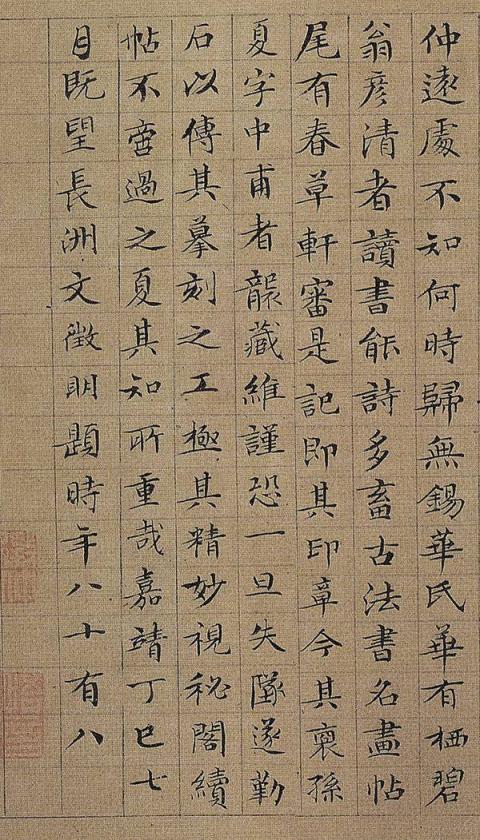 仲遠處不知何時歸無錫華氏華有栖碧
翁彦清者讀書能詩多畜古法書名畫帖
尾有春草軒審是記即其印章今其裔孫
夏字中甫者襲藏維謹恐一旦失墜遂勒
石以傳其摹刻之工極其精妙視秘閣續
帖不啻過之夏其知所重哉嘉靖丁巳七
月既望長洲文徵明題時年八十有八